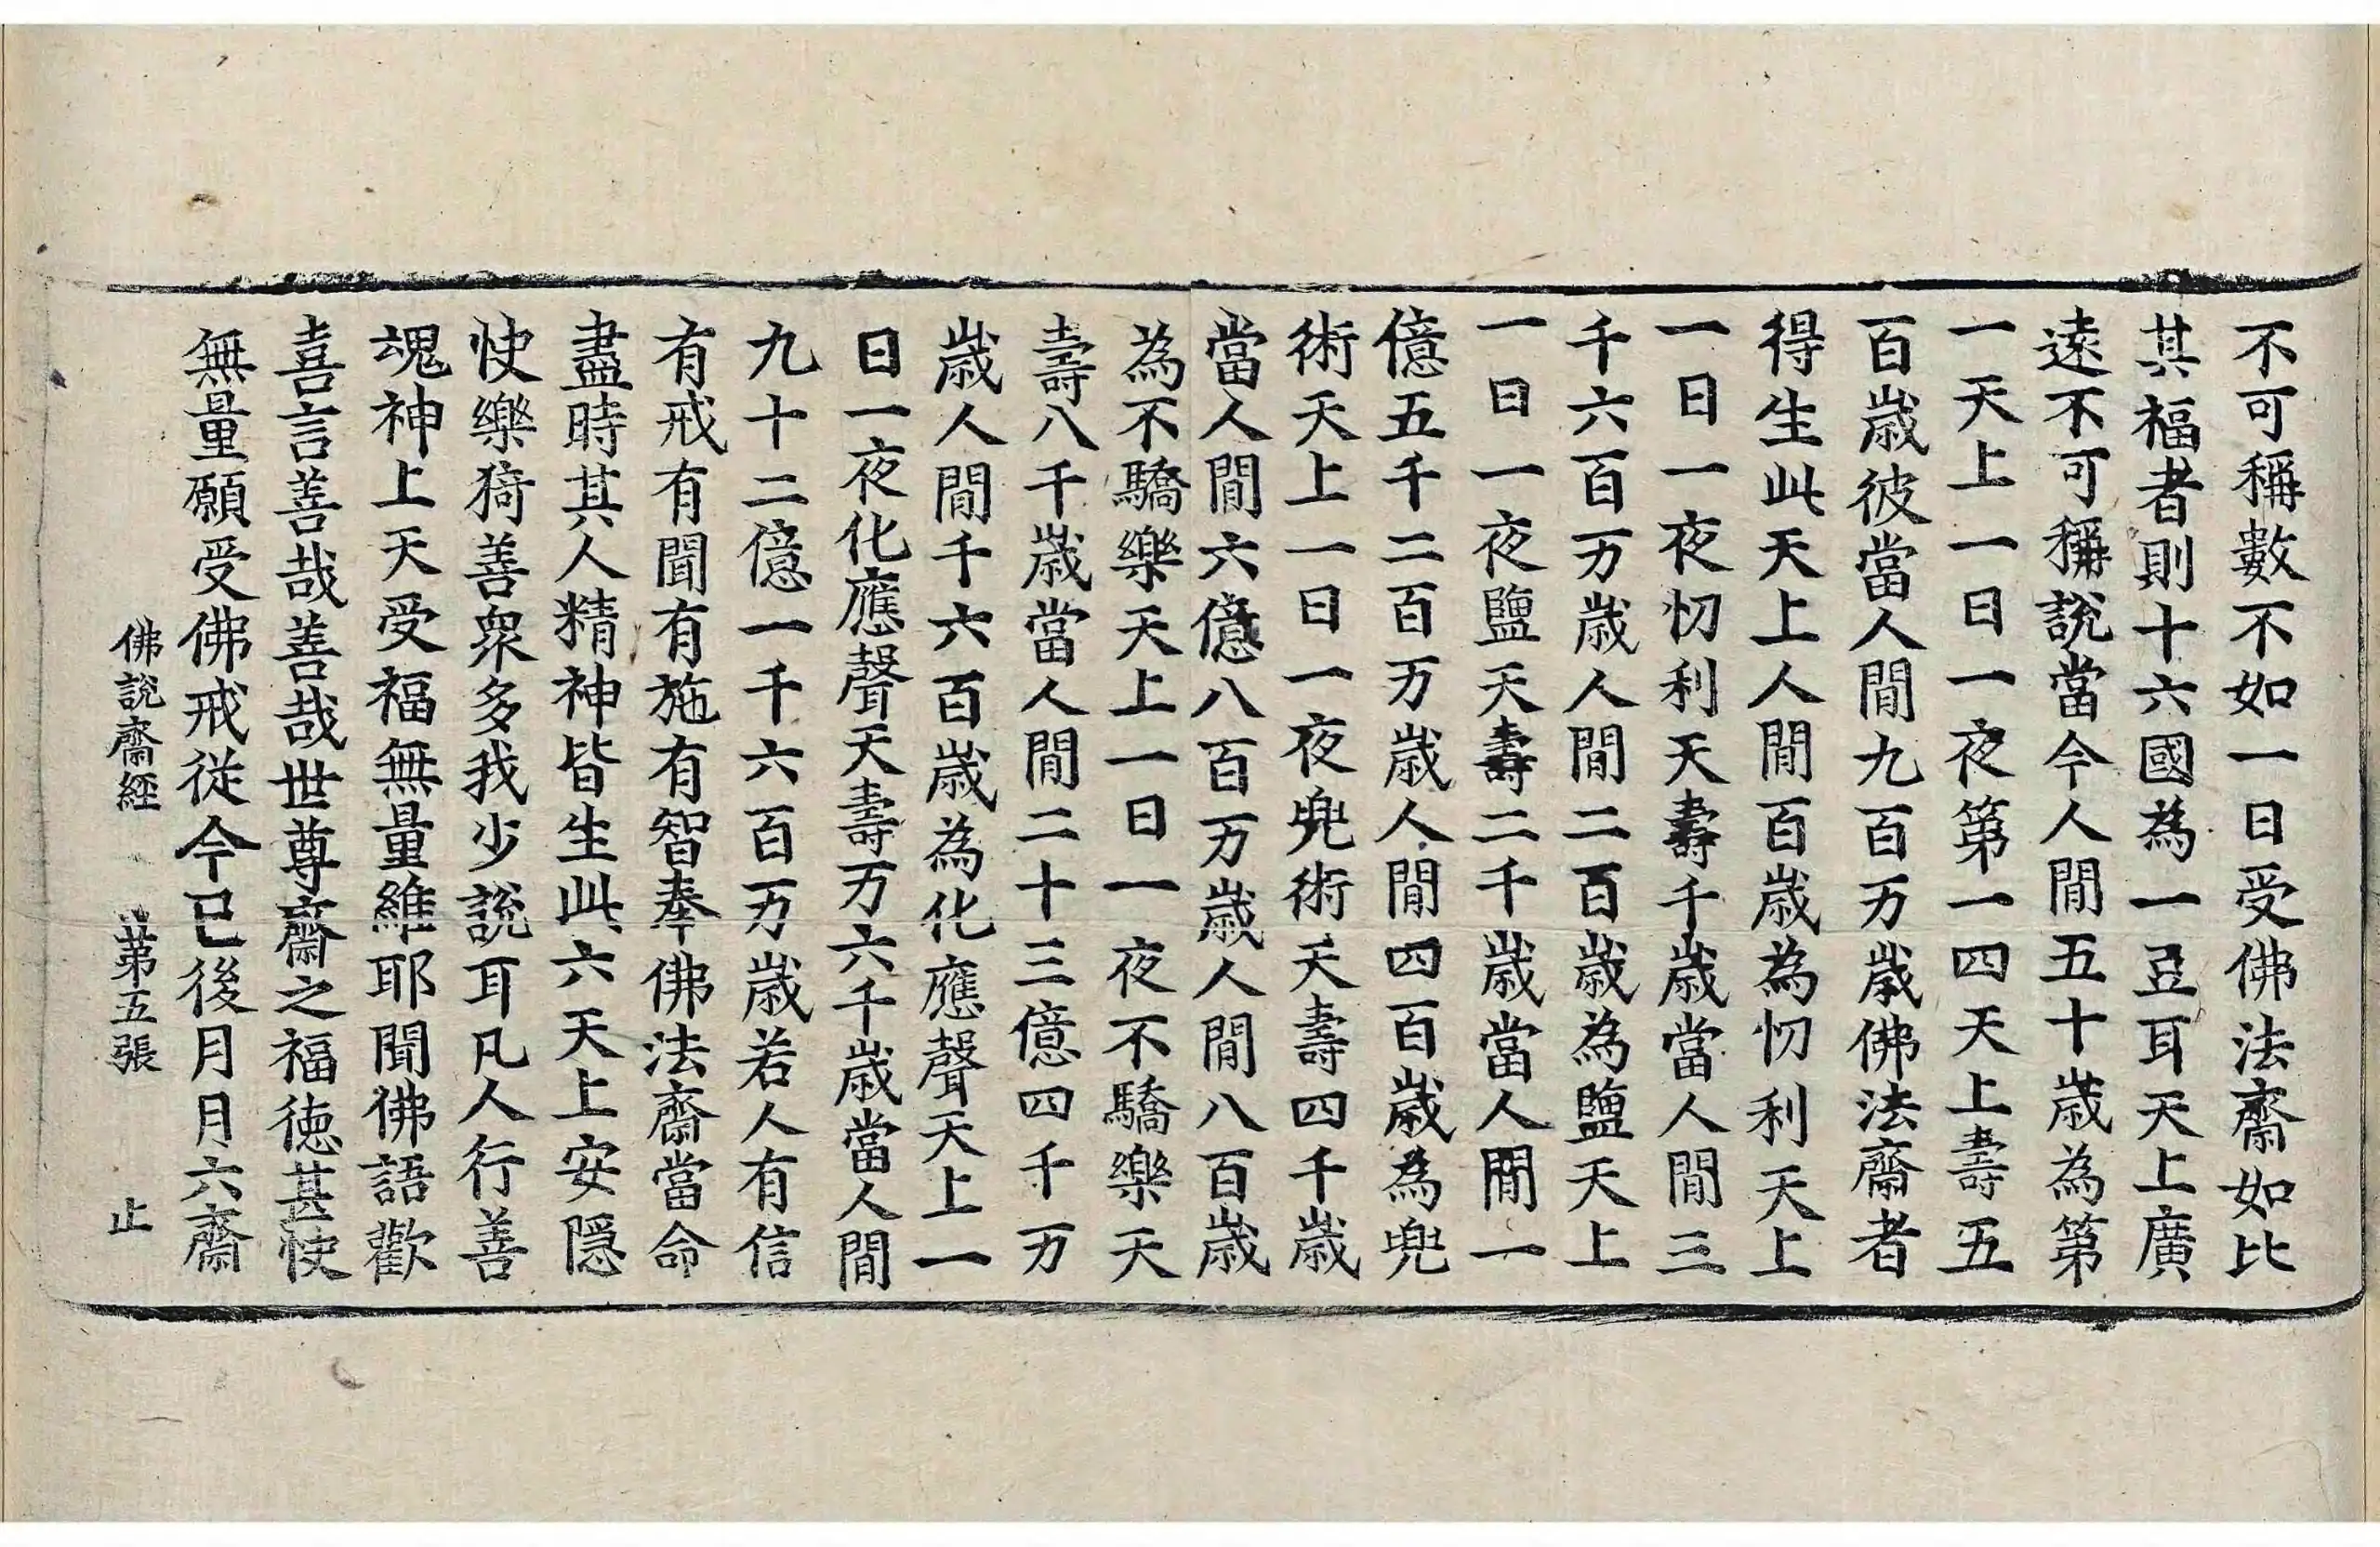 不可稱數不如一日受佛法齋如比
其福者則十六國為一豆耳天上廣
遠不可稱說當今人間五十歲為第
一天上一日一夜第一四天上壽五
百歲彼當人間九百万歲佛法齋者
得生此天上人間百歲為忉利天上
一日一夜忉利天壽千歲當人間三
千六百万歲人間二百歲為鹽天上
一日一夜鹽天壽二千歲當人間一
億五千二百万歲人間四百歲為兜
術天上一日一夜兜術天壽四千歲
當人間六億八百万歲人間八百歲
為不驕樂天上一日一夜不驕樂天
壽八千歲當人間二十三億四千万
歲人間千六百歲為化應聲天上一
日一夜化應聲天壽万六千歲當人間
九十二億一千六百万歲若人有信
有戒有聞有施有智奉佛法齋當命
盡時其人精神皆生此六天上安隱
快樂猗善眾多我少說耳凡人行善
魂神上天受福無量維耶聞佛語歡
喜言善哉善哉世尊齋之福德甚快
無量願受佛戒從今已後月月六齋
佛說齋經 第五張 止